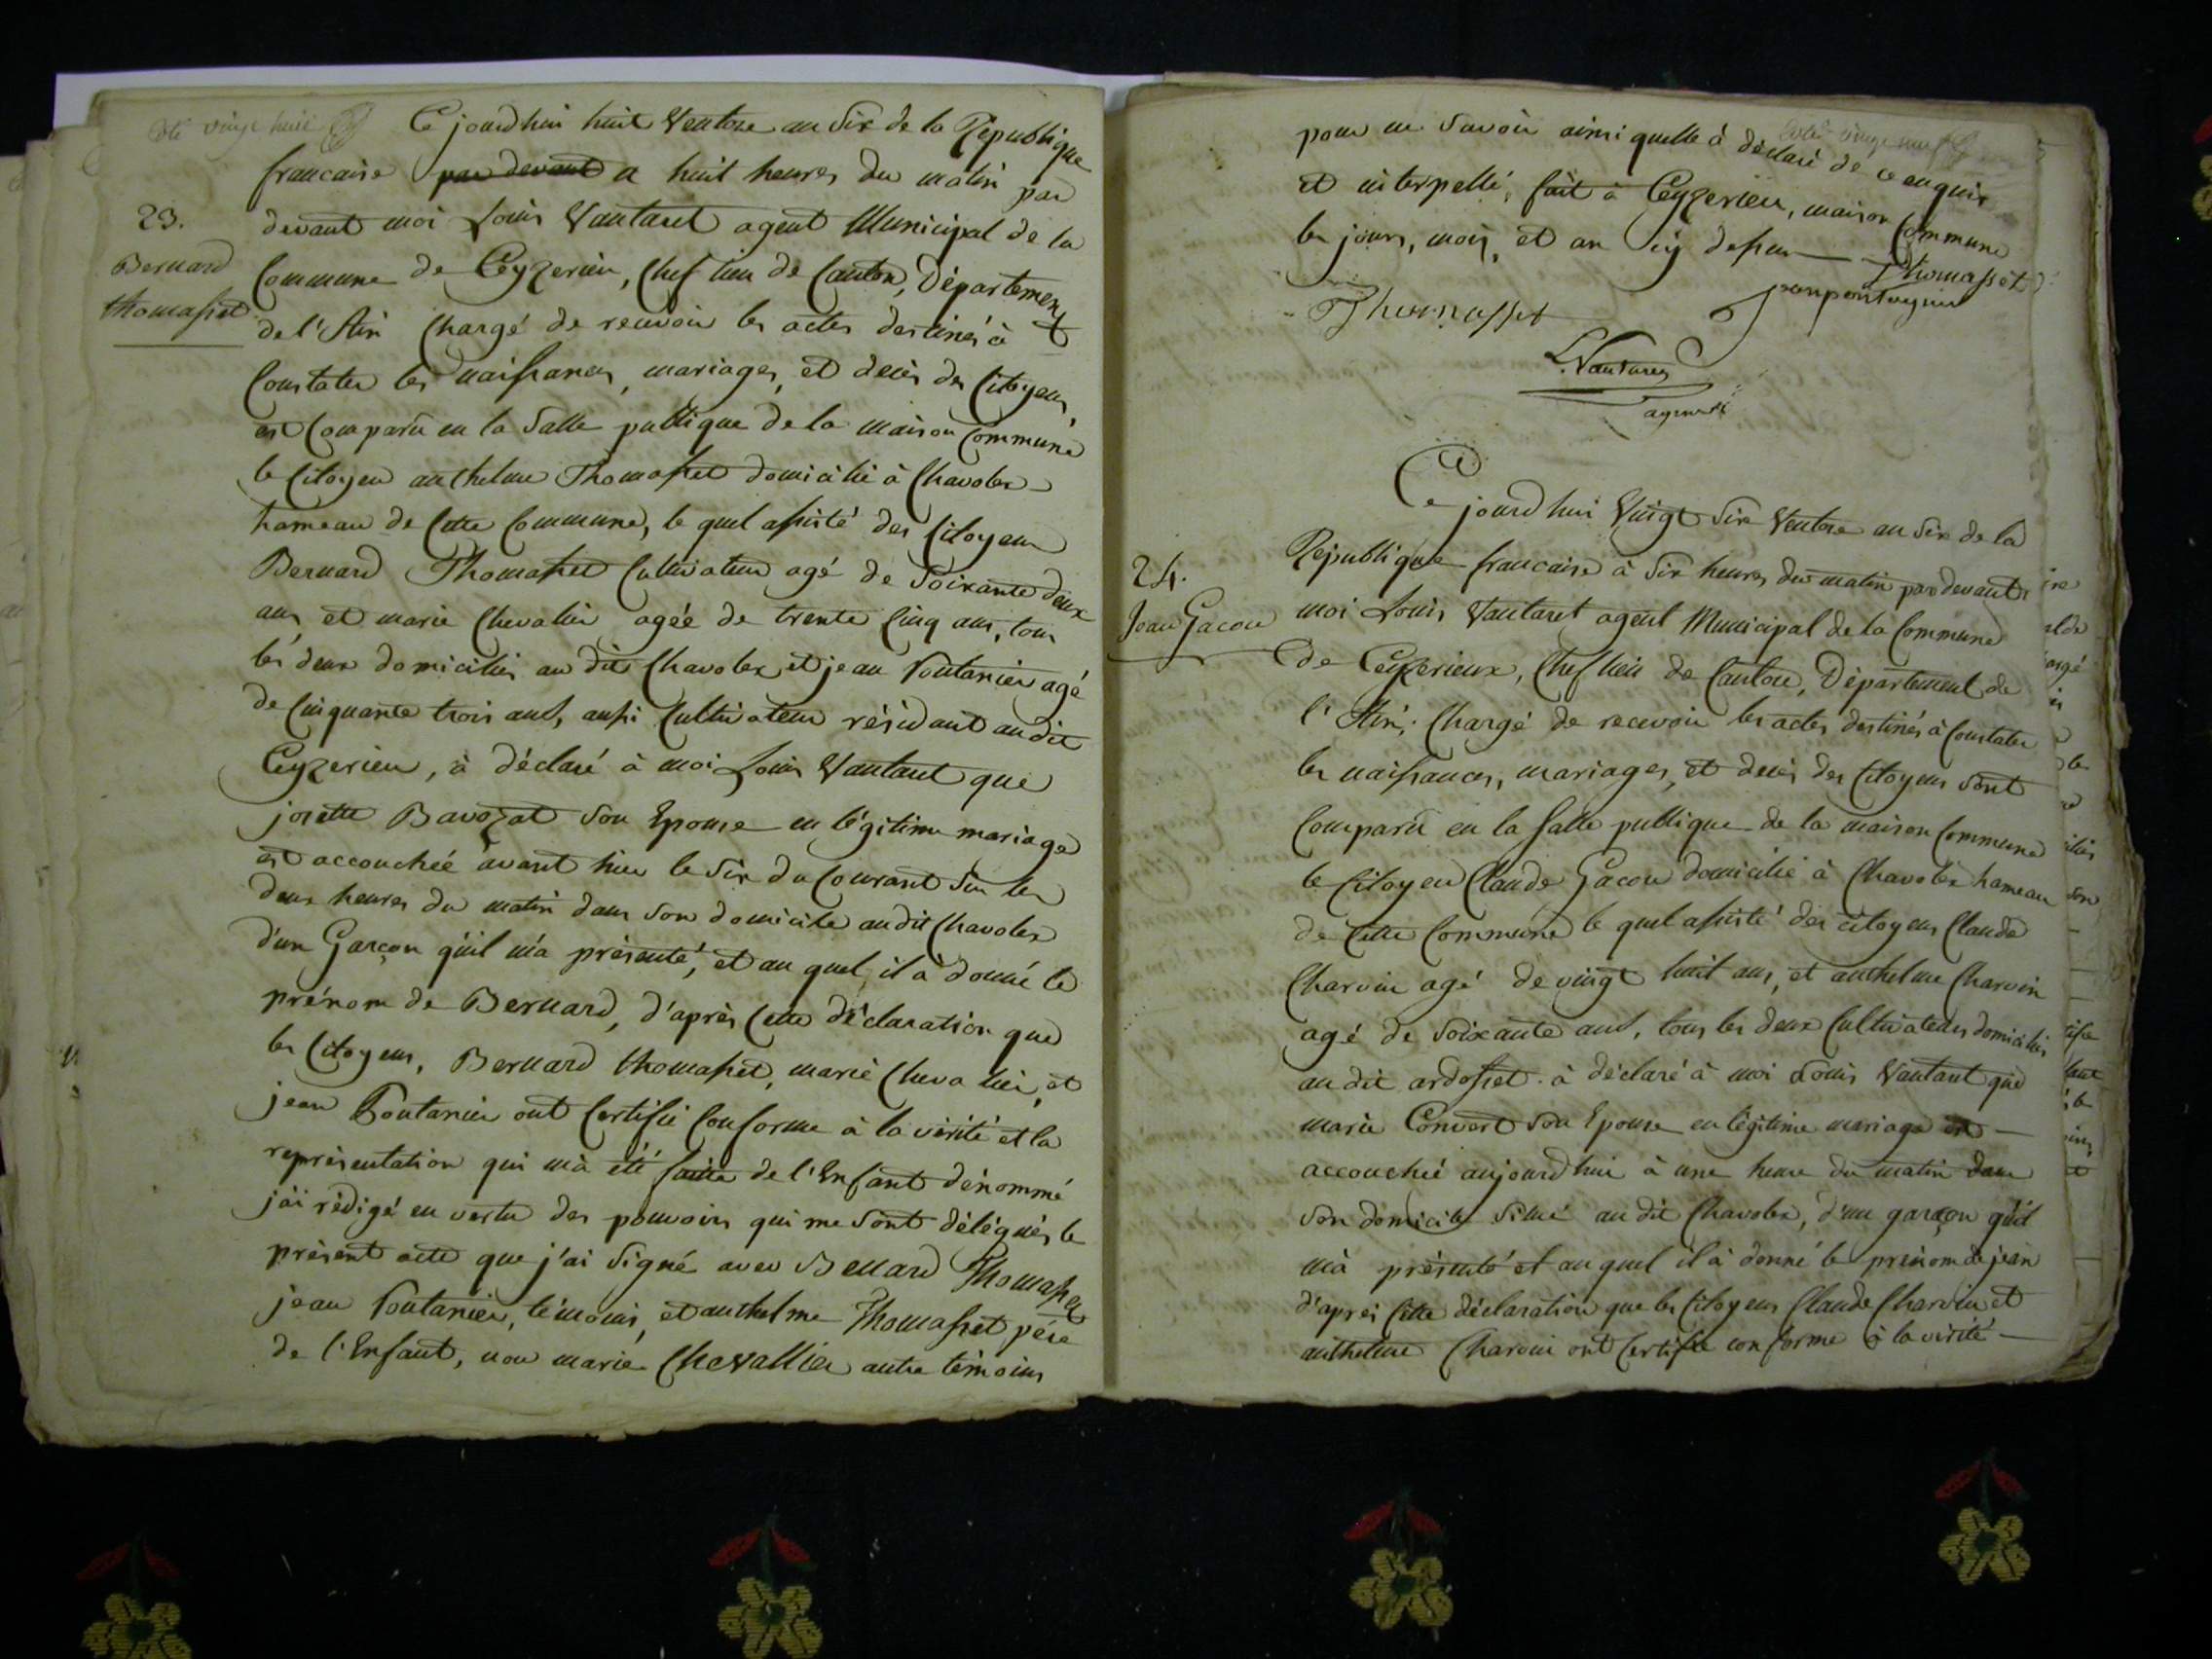 Coté vingt huit
Ce jourd'hui huit Ventose an Six de la République
francaise par devant a huit heures du matin par
devant moi Louis Vautaret agent Municipal de la
23.
Bernard
thomasset
Commune de Ceyzerieu, Chef lieu de Canton, Département
de l'Ain Chargé de recevoir les actes destinés à
Constater les naissances, mariages, et decès des Citoyens,
est Comparu en la Salle publique de la maison Commune
le Citoyen anthelme Thomasset domicilié à Chavolex
hameau de Cette Commune, le quel assisté des Citoyens
Bernard Thomasset Cultivateur agé de Soixante deux
ans, et marie Chevalier agée de trente Cinq ans, tous
les deux domiciliés au dit Chavolex et jean Pontanier agé
de Cinquante trois ans, aussi Cultivateur résidant au dit
Ceyzerieu, à déclaré à moi Louis Vautaret que
josette Bavozat Son Epouse en légitime mariage
est accouchée avant hier le Six du Courant Sur les
deux heures du matin dans Son domicile au dit Chavolex
d'un Garçon qu'il m'a présenté, et au quel il à donné le
prénom de Bernard, d'après Cette déclaration que
les Citoyens, Bernard thomasset, marie Chevalier, et
jean Pontanier ont Certifié Conforme à la vérité et la
représentation qui m'à été faite de l'Enfant dénommé
j'ai rédigé en vertu des pouvoirs qui me Sont délégués le
présent acte que j'ai Signé avec Bernard Thomasset
jean Pontanier, témoins, et anthelme Thomasset père
de l'Enfant, non marie Chevallier autre témoins
Coté vingt neuf
pour ne Savoir ainsi quelle à déclaré de ce enquise
et interpellé, fait à Ceyzerieu, maison Commune
les jours, mois, et an cy dessus
Thomasset
Thomasset
L. Vautaret
agent
Ce jourd'hui Vingt Six Ventose an Six de la
République francaise à Six heures du matin par devant
24.
Jean Gacon
moi Louis Vautaret agent Municipal de la Commune
de Ceyzerieux, Chef lieu de Canton, Département de
l'Ain, Chargé de recevoir les actes destinés à Constater
les naissances, mariages, et decès des Citoyens Sont
Comparu en la Salle publique de la maison Commune
le Citoyen Claude Gacon domicilié à Chavolex hameau
de Cette Commune le quel assisté des citoyens Claude
Charvin agé de vingt huit ans, et anthelme Charvin
agé de Soixante ans, tous les deux Cultivateurs domiciliés
au dit ardosset. à déclaré à moi Louis Vautaret que
marie Convert Son Epouse en légitime mariage est
accouchée aujourd'hui à une heure du matin dans
Son domicile Situé au dit Chavolex, d'un garçon qu'il
m'à présenté et au quel il à donné le prénom de jean
d'après Cette déclaration que les Citoyens Claude Charvin et
anthelme Charvin ont Certifié conforme à la vérité